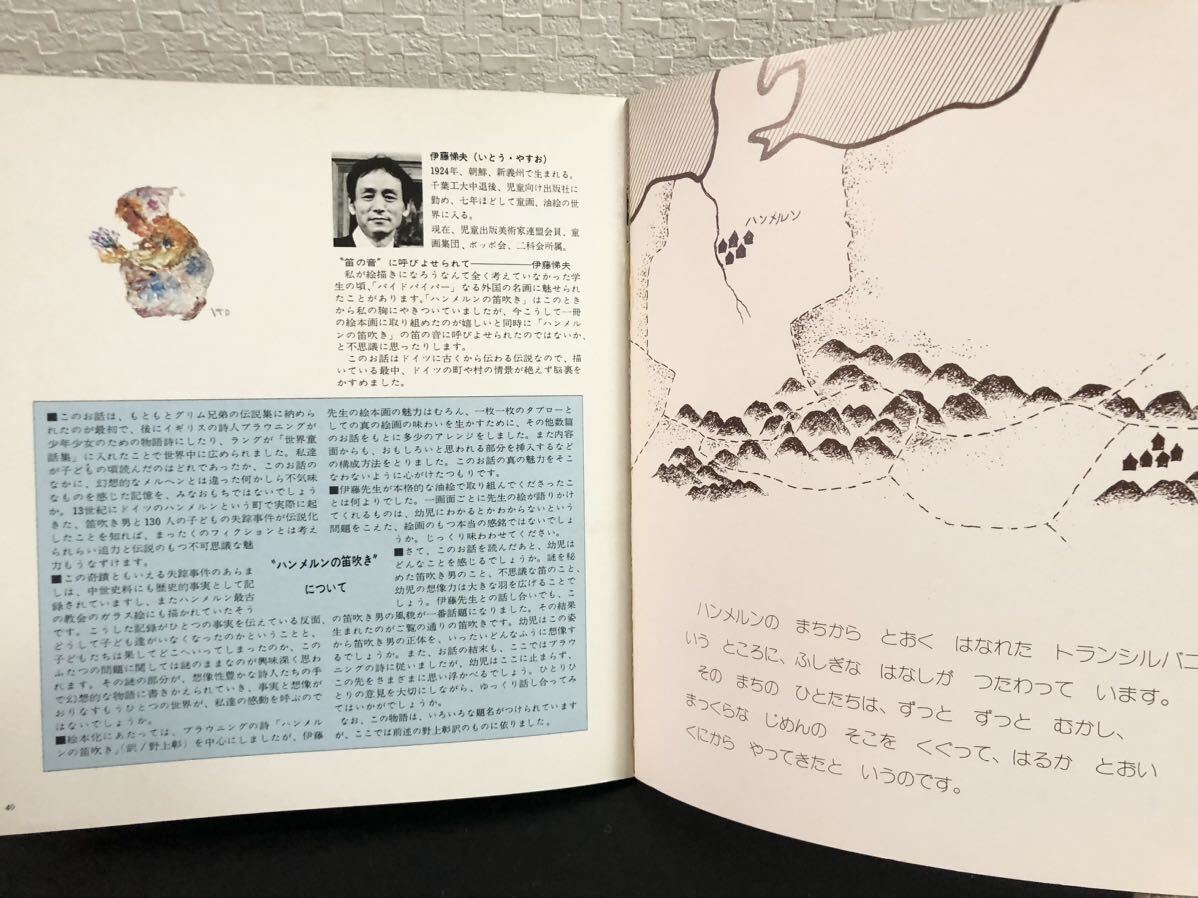 伊藤悌夫(いとう・やすお)
1924年、朝鮮、新義州で生まれる。
千葉工大中退後、児童向け出版社に
勤め、七年ほどして童画、油絵の世
界に入る。
現在、児童出版美術家連盟会員、童
画集団、ポッポ会、二科会所属。
〝笛の音〟に呼びよせられて————伊藤悌夫
私が絵描きになろうなんて全く考えていなかった学
生の頃、「パイドパイパー」なる外国の名画に魅せられ
たことがあります。「ハンメルンの笛吹き」はこのとき
から私の胸にやきついていましたが、今こうして一冊
の絵本画に取り組めたのが嬉しいと同時に「ハンメル
ンの笛吹き」の笛の音に呼びよせられたのではないか、
と不思議に思ったりします。
このお話はドイツに古くから伝わる伝説なので、描
いている最中、ドイツの町や村の情景が絶えず脳裏を
かすめました。
ITO
■このお話は、もともとグリム兄弟の伝説集に納めら
れたのが最初で、後にイギリスの詩人ブラウニングが
少年少女のための物語詩にしたり、ラングが「世界童
話集」に入れたことで世界中に広められました。私達
が子どもの頃読んだのはどれであったか、このお話の
なかに、幻想的なメルヘンとは違った何かしら不気味
なものを感じた記憶を、みなおもちではないでしょう
か。13世紀にドイツのハンメルンという町で実際に起
きた、笛吹き男と130人の子どもの失踪事件が伝説化
したことを知れば、まったくのフィクションとは考え
られらい迫力と伝説のもつ不可思議な魅
力もうなずけます。
■この奇蹟ともいえる失踪事件のあらま
しは、中世史料にも歴史的事実として記
録されていますし、またハンメルン最古
の教会のガラス絵にも描かれていたそう
です。こうした記録がひとつの事実を伝えている反面、
どうして子ども達がいなくなったのかということと、
子どもたちは果してどこへいってしまったのか、この
ふたつの問題に関しては謎のままなのが興味深く思わ
れます。その謎の部分が、想像性豊かな詩人たちの手
で幻想的な物語に書きかえられていき、事実と想像が
おりなすもうひとつの世界が、私達の感動を呼ぶので
はないでしょうか。
■絵本化にあたっては、ブラウニングの詩「ハンメル
ンの笛吹き」(訳/野上彰)を中心にしましたが、伊藤
〝ハンメルンの笛吹き〟
について
先生の絵本画の魅力はむろん、一枚一枚のタブローと
しての真の絵画の味わいを生かすために、その他数篇
のお話をもとに多少のアレンジをしました。また内容
面からも、おもしろいと思われる部分を挿入するなど
の構成方法をとりました。このお話の真の魅力をそこ
なわないように心がけたつもりです。
■伊藤先生が本格的な油絵で取り組んでくださったこ
とは何よりでした。一画面ごとに先生の絵が語りかけ
てくれるものは、幼児にわかるとかわからないという
問題をこえた、絵画のもつ本当の感銘ではないでしょ
うか。じっくり味わわせてください。
■さて、このお話を読んだあと、幼児は
どんなことを感じるでしょうか。謎を秘
めた笛吹き男のこと、不思議な笛のこと、
幼児の想像力は大きな羽を広げることで
しょう。伊藤先生との話し合いでも、こ
の笛吹き男の風貌が一番話題になりました。その結果
生まれたのがご覧の通りの笛吹きです。幼児はこの姿
から笛吹き男の正体を、いったいどんなふうに想像す
るでしょうか。また、お話の結末も、ここではブラウ
ニングの詩に従いましたが、幼児はここに止まらず、
この先をさまざまに思い浮かべるでしょう。ひとりひ
とりの意見を大切にしながら、ゆっくり話し合ってみ
てはいかがでしょうか。
なお、この物語は、いろいろな題名がつけられています
が、ここでは前述の野上彰訳のものに依りました。
40
ハンメルン
ハンメルンの まちから とおく はなれた トランシルバニ
いう ところに、ふしぎな はなしが つたわって います。
その まちの ひとたちは、ずっと ずっと むかし、
まっくらな じめんの そこを くぐって、はるか とおい
くにから やってきたと いうのです。